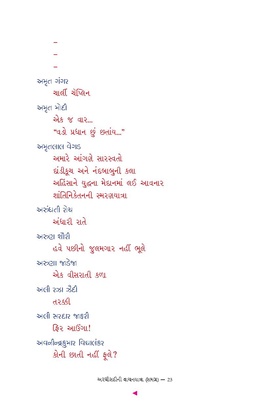 –
–
–
અમૃત ગંગર
ચાર્લી ચૅપ્લિન
અમૃત મોદી
એક જ વાર...
“વડો પ્રધાન છું છતાંય...”
અમૃતલાલ વેગડ
અમારે આંગણે સારસ્વતો
દાંડીકૂચ અને નંદબાબુની કલા
અહિંસાને યુદ્ધના મેદાનમાં લઈ આવનાર
શાંતિનિકેતનની સ્મરણયાત્રા
અરુંધતી રોય
અંધારી રાતે
અરુણ શૌરી
હવે પછીનો જુલમગાર નહીં ભૂલે
અરુણા જાડેજા
એક વીસરાતી કળા
અલી રઝા ઝૈદી
તરક્કી
અલી સરદાર જાફરી
ફિર આઉંગા!
અવનીન્દ્રકુમાર વિદ્યાલંકર
કોની છાતી નહીં ફૂલે?
અરધીસદીની વાચનયાત્રા (સમગ્ર) — 25